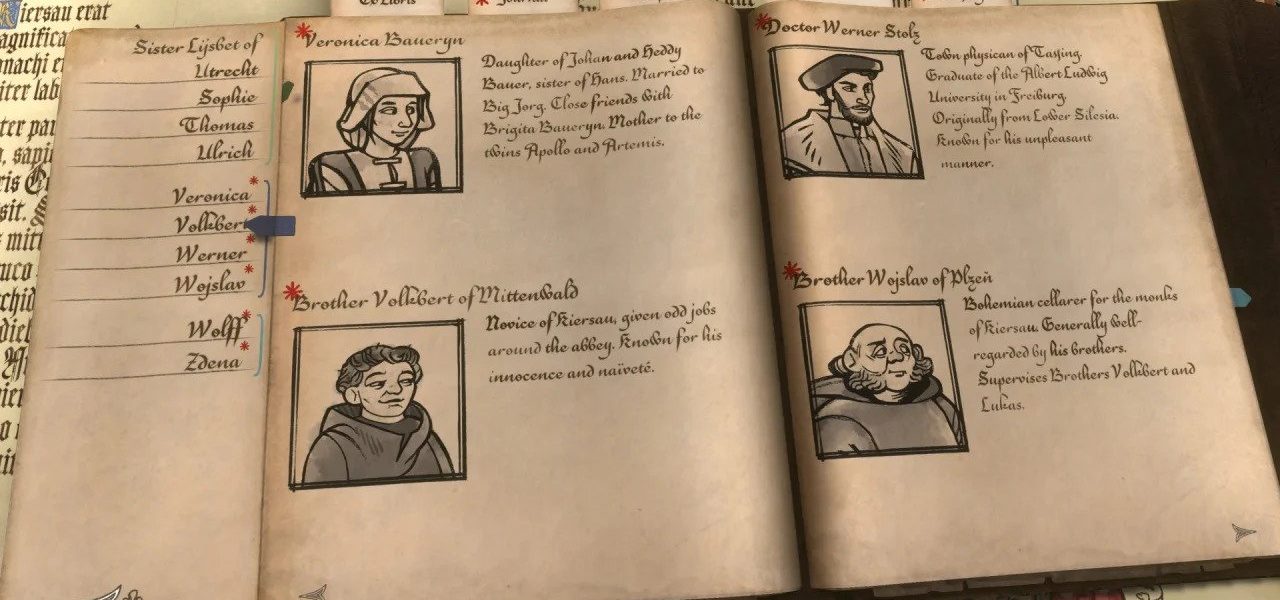 Ex Libris
Journal
iersau erat
agnifica
Sister Lijsbet of
Utrecht
Sophie
Thomas
Ulrich
Veronica
Volkbert
Werner
Wojslav
Wolff
Zdena
Veronica Baueryn
Daughter of Johan and Heddy
Bauer, sister of Hans. Married to
Big Jorg. Close friends with
Brigita Baueryn. Mother to the
twins Apollo and Artemis.
Brother Volkbert of Mittenwald
Novice of Kiersau, given odd jobs
around the abbey. Known for his
innocence and naïveté.
Doctor Werner Stolz
Town physican of Tassing.
Graduate of the Albert Ludwig
University in Freiburg.
Originally from Lower Silesia.
Known for his unpleasant
manner.
Brother Wojslav of Plzeň
Bohemian cellarer for the monks
of Kiersau. Generally well-
regarded by his brothers.
Supervises Brothers Volkbert and
Lukas.